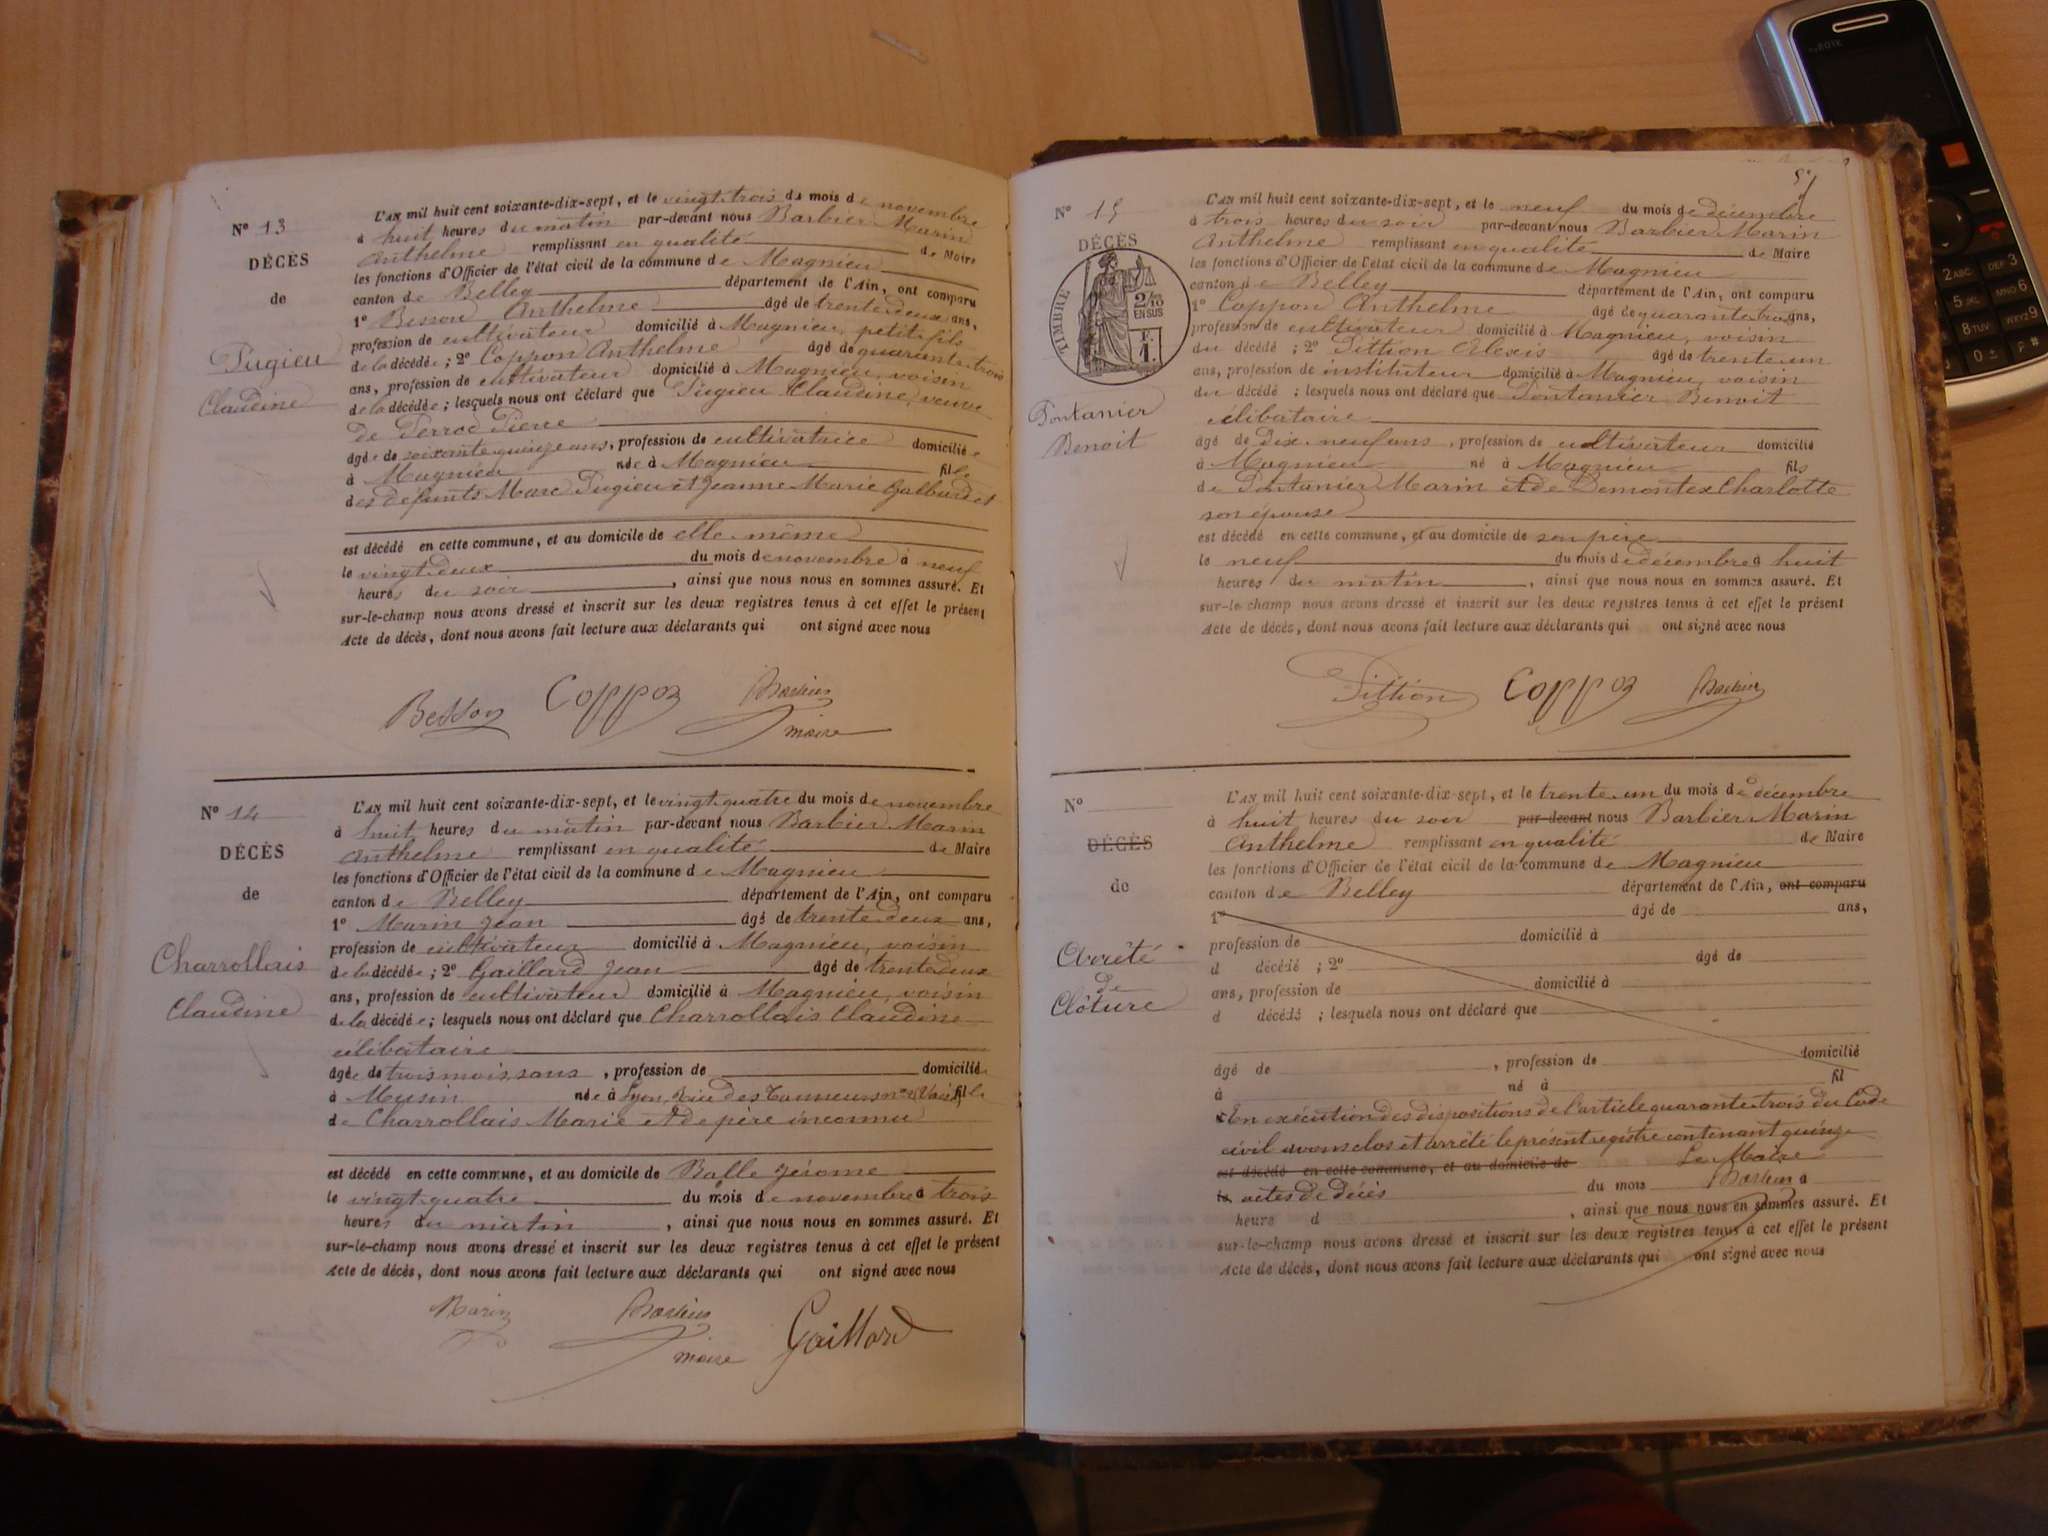 Nº 13
DÉCÈS
de
Pugieu
Claudine
L'AN mil huit cent soixante-dix-sept, et le vingt-trois du mois de novembre
à huit heures du matin par-devant nous Barbier Marin
Anthelme remplissant en qualité de Maire
les fonctions d'Officier de l'état civil de la commune de Magnieu
canton de Belley département de l'Ain, ont comparu
1º Besson Anthelme âgé de trente deux ans,
profession de cultivateur domicilié à Magnieu, petit fils
de la décédée ; 2º Coppoz Anthelme âgé de quarante trois
ans, profession de cultivateur domicilié à Magnieu, voisin
de la décédée ; lesquels nous ont déclaré que Pugieu Claudine, veuve
de Perrod Pierre
âgée de soixante quinze ans, profession de cultivatrice domiciliée
à Magnieu née à Magnieu fille
des défunts Marc Pugieu et Jeanne Marie
est décédé en cette commune, et au domicile de elle même
le vingt deux du mois de novembre à neuf
heures du soir , ainsi que nous nous en sommes assuré. Et
sur-le-champ nous avons dressé et inscrit sur les deux registres tenus à cet effet le présent
Acte de décès, dont nous avons fait lecture aux déclarants qui ont signé avec nous
Besson Coppoz Barbier
maire
Nº 14
DÉCÈS
de
Charrollais
Claudine
L'AN mil huit cent soixante-dix-sept, et le vingt quatre du mois de novembre
à huit heures du matin par-devant nous Barbier Marin
Anthelme remplissant en qualité de Maire
les fonctions d'Officier de l'état civil de la commune de Magnieu
canton de Belley département de l'Ain, ont comparu
1º Marin Jean âgé de trente deux ans,
profession de cultivateur domicilié à Magnieu, voisin
de la décédée ; 2º Gaillard Jean âgé de trente deux
ans, profession de cultivateur domicilié à Magnieu, voisin
de la décédée ; lesquels nous ont déclaré que Charrollais Claudine
célibataire
âgée de trois mois, sans , profession de domiciliée
à Musin née à Lyon, rue des Tanneurs nº fille
de Charrollais Marie et de père inconnu
est décédé en cette commune, et au domicile de Balle Jérome
le vingt quatre du mois de novembre à trois
heures du matin , ainsi que nous nous en sommes assuré. Et
sur-le-champ nous avons dressé et inscrit sur les deux registres tenus à cet effet le présent
Acte de décès, dont nous avons fait lecture aux déclarants qui ont signé avec nous
Marin Barbier Gaillard
maire
Nº 15
DÉCÈS
TIMBRE
2/10
EN SUS
F.
1.
Fontanier
Benoit
L'AN mil huit cent soixante-dix-sept, et le neuf du mois de décembre
à trois heures du soir par-devant nous Barbier Marin
Anthelme remplissant en qualité de Maire
les fonctions d'Officier de l'état civil de la commune de Magnieu
canton de Belley département de l'Ain, ont comparu
1º Coppoz Anthelme âgé de quarante trois ans,
profession de cultivateur domicilié à Magnieu, voisin
du décédé ; 2º Pittion Alexis âgé de trente un
ans, profession de instituteur domicilié à Magnieu, voisin
du décédé ; lesquels nous ont déclaré que Fontanier Benoit
célibataire
âgé de dix neuf ans , profession de cultivateur domicilié
à Magnieu né à Magnieu fils
de Fontanier Marin et de Demontex Charlotte
son épouse
est décédé en cette commune, et au domicile de son père
le neuf du mois de décembre à huit
heures du matin , ainsi que nous nous en sommes assuré. Et
sur-le-champ nous avons dressé et inscrit sur les deux registres tenus à cet effet le présent
Acte de décès, dont nous avons fait lecture aux déclarants qui ont signé avec nous
Pittion Coppoz Barbier
Nº
DÉCÈS
de
Arrêté
de
Clôture
L'AN mil huit cent soixante-dix-sept, et le trente un du mois de décembre
à huit heures du soir par-devant nous Barbier Marin
Anthelme remplissant en qualité de Maire
les fonctions d'Officier de l'état civil de la commune de Magnieu
canton de Belley département de l'Ain, ont comparu
1º âgé de ans,
profession de domicilié à
d décédé ; 2º âgé de
ans, profession de domicilié à
d décédé ; lesquels nous ont déclaré que
âgé de , profession de domicilié
à né à fil
En exécution des dispositions de l'article quarante trois du Code
civil avons clos et arrêté le présent registre contenant quinze
est décédé en cette commune, et au domicile de Le Maire
le actes de décès du mois Barbier à
heure d , ainsi que nous nous en sommes assuré. Et
sur-le-champ nous avons dressé et inscrit sur les deux registres tenus à cet effet le présent
Acte de décès, dont nous avons fait lecture aux déclarants qui ont signé avec nous
2ABC DEF3
5JKL MNO6
8TUV WXYZ9
0± P#